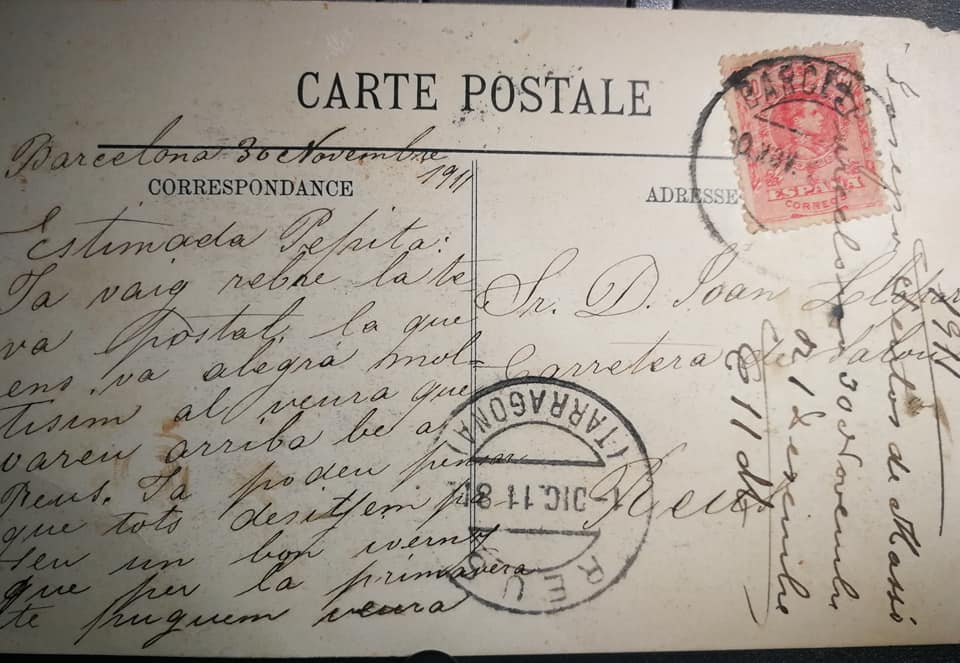 CARTE POSTALE
Barcelona 30 Novembre
1911
CORRESPONDANCE
ADRESSE
Estimada Pepita:
Ja vaig rebre la te
va postal, la que
ens va alegrá mol-
tisim al veura que
vareu arriba be a
Reus. Ja podeu pensar
que tots desitjem pa
seu un bon ivern y
que per la primavera
te puguem veura
Sr. D. Joan
Carretera de Salou
Reus
BARCEL
30 NOV.
ESPAÑA
CORREOS
REUS
1-DIC.11 8
(TARRAGONA)
de Massó
30 Novembre
1 Desembre
1911